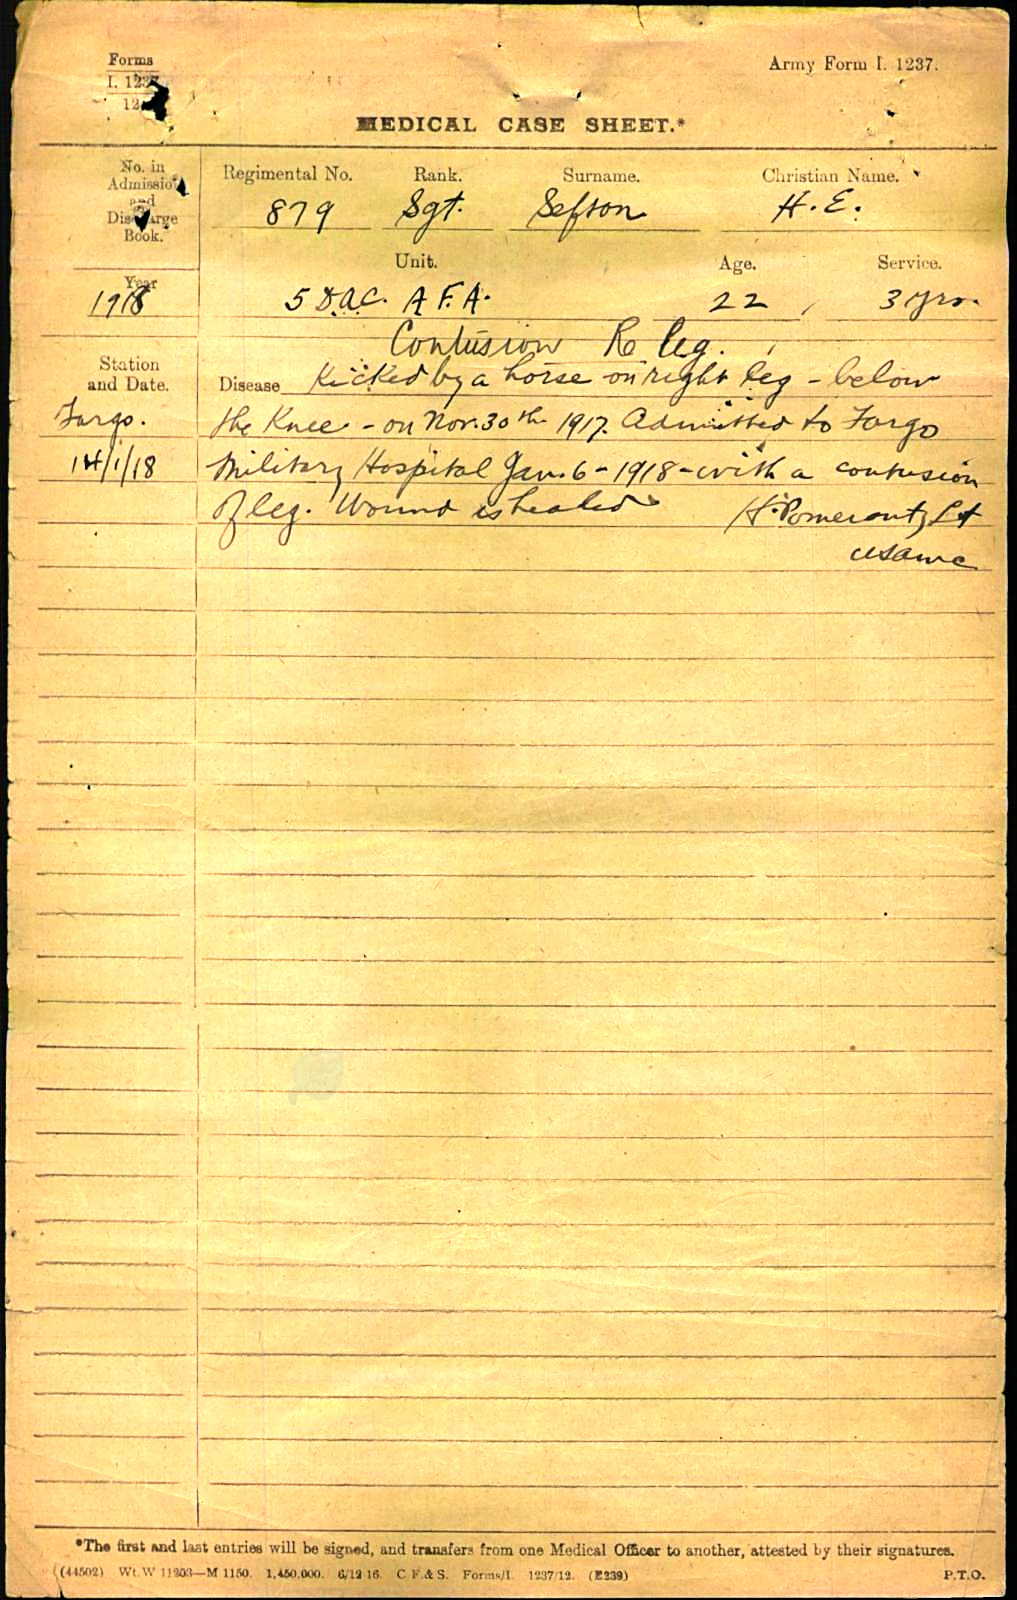 Forms
I. 1237
12
Army Form I. 1237.
MEDICAL CASE SHEET.*
No. in
Admission
and
Discharge
Book.
Regimental No. Rank. Surname. Christian Name.
879 Sgt. Sefton H. E.
Unit. Age. Service.
Year
1918 5 D.A.C. A.F.A. 22 3 yrs.
Contusion R leg.
Station
and Date.
Disease Kicked by a horse on right leg - below
Fargo. the Knee - on Nov. 30th 1917. Admitted to Fargo
14/1/18 Military Hospital Jan. 6 - 1918 - with a contusion
of leg. Wound is healed H. Pomerantz Lt
USAMC
*The first and last entries will be signed, and transfers from one Medical Officer to another, attested by their signatures.
(44502) Wt. W 11203—M 1150. 1,450,000. 6/12 16. C F. & S. Forms/I. 1237/12. (E239) P.T.O.